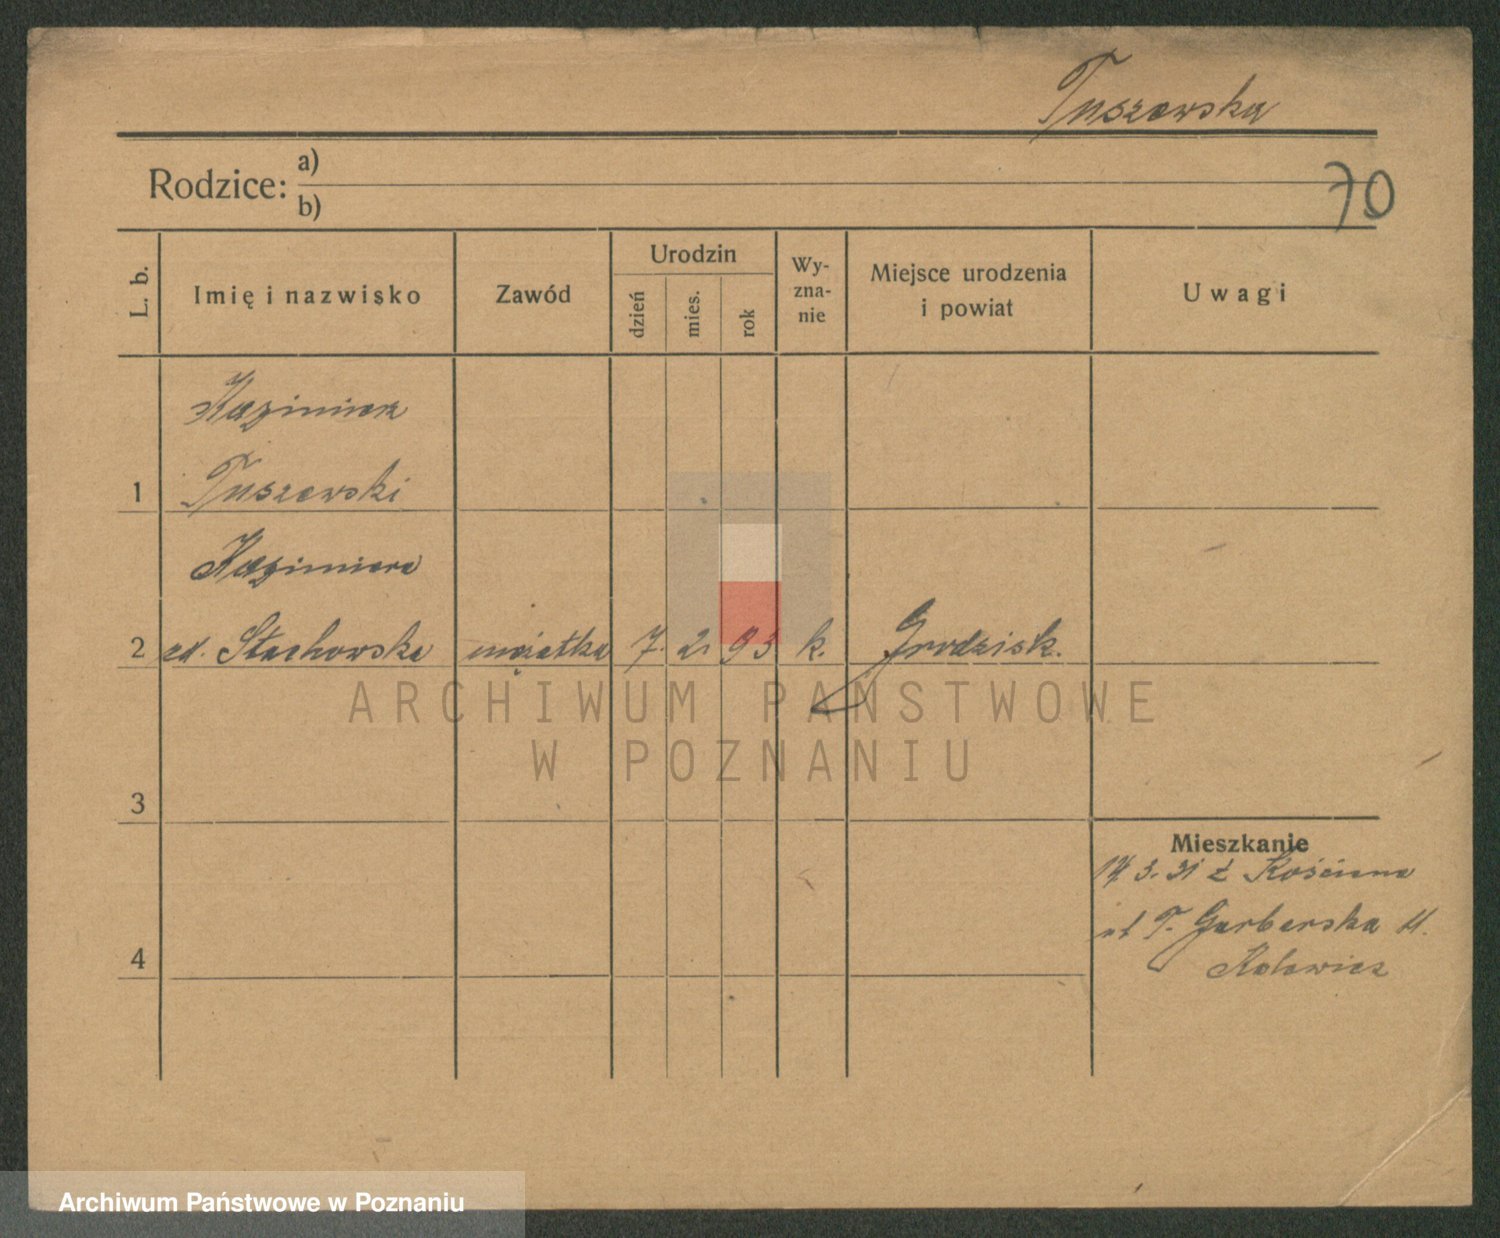 Tuszewska
Rodzice: a)
b)
70
L. b. Imię i nazwisko Zawód Urodzin dzień mies. rok Wy-zna-nie Miejsce urodzenia i powiat Uwagi
Kazimierz
1 Tuszewski
Kazimiera
2 zd. Stachowska mężatka 7. 2. 93 k. Grodzisk.
ARCHIWUM PAŃSTWOWE
W POZNANIU
3
Mieszkanie
14 3. 31 z Kościana
T. Garberska 11.
4
Archiwum Państwowe w Poznaniu